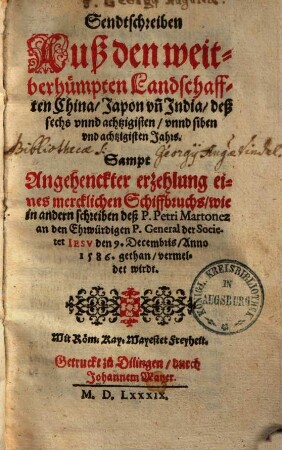 Sendtschreiben
Auß den weit-
berhümpten Landschaff-
ten China / Japon vñ India / deß
sechs vnnd achtzigisten / vnnd siben
vnd achtzigisten Jahrs.
Bibliothecæ S. Georgij Augustæ Vindel.
Sampt
Angehenckter erzehlung ei-
nes mercklichen Schiffbruchs / wie
in andern schreiben deß P. Petri Martonez
an den Ehrwürdigen P. General der Socie-
tet IESV den 9. Decembris / Anno
1586. gethan / vermel-
det wirdt.
KÖNIGL. KREISBIBLIOTHEK
IN
AUGSBURG
Mit Röm. Kay. Mayestet Freyheit.
Getruckt zů Dilingen / durch
Johannem Mayer.
M. D. LXXXIX.